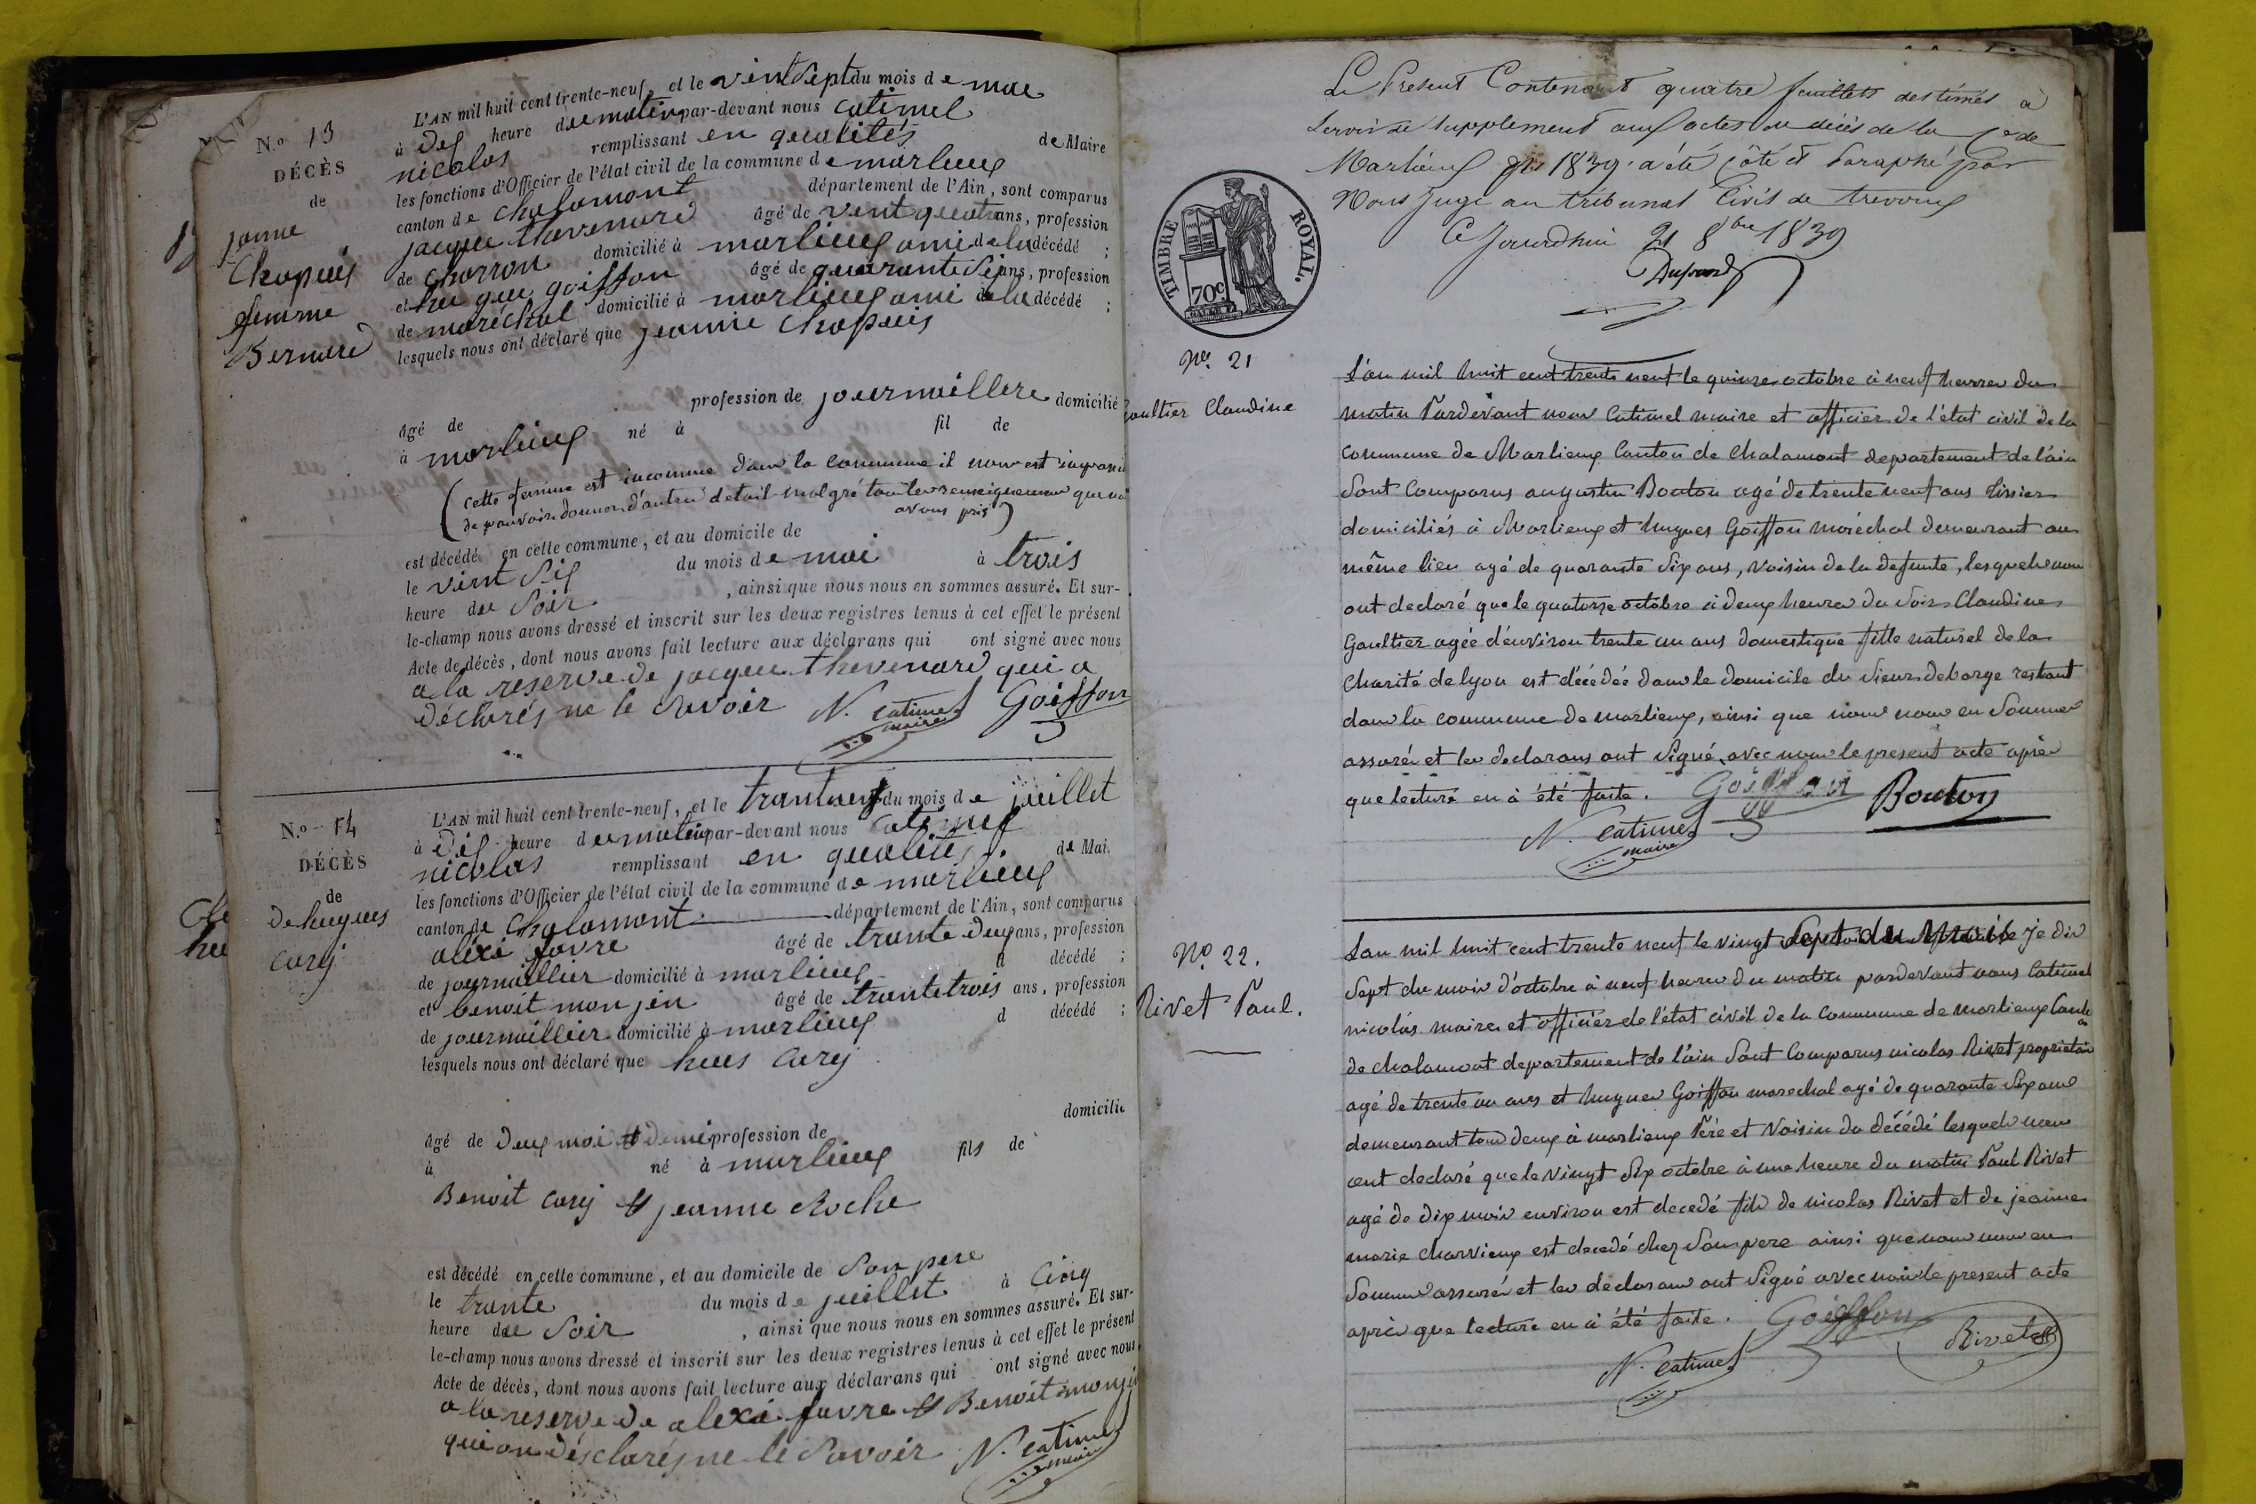 N.o 13
DÉCÈS
de
janne
Chapuis
femme
Bernard
L'AN mil huit cent trente-neuf, et le vint sept du mois de mai
à Dis heure du matin par-devant nous Catimel
nicolas remplissant en qualités de Maire
les fonctions d'Officier de l'état civil de la commune de marlieux
canton de Chalamont département de l'Ain, sont comparus
jacque thevenard âgé de vent quatre ans, profession
de charron domicilié à marlieux ami de la décédé ;
et hugue goiffon âgé de quarante Six ans, profession
de maréchal domicilié à marlieux ami de la décédé ;
lesquels nous ont déclaré que jeanne Chapuis
profession de journaillere domicilié
âgé de
à marlieux né à fil de
(cette femme est inconnue dans la commune il nous est impossi
de pouvoir donner d'autre détail malgré tout les renseignemens que no
avons pris)
est décédé en cette commune, et au domicile de
le vint Six du mois de mai à trois
heure du Soir , ainsi que nous nous en sommes assuré. Et sur-
le-champ nous avons dressé et inscrit sur les deux registres tenus à cet effet le présent
Acte de décès, dont nous avons fait lecture aux déclarans qui ont signé avec nous
a la reserve de jacque thevenard qui a
déclarés ne le Savoir N. Catimel maire Goiffon
N.o 14
DÉCÈS
de
De hugues
Carij
L'AN mil huit cent trente-neuf, et le trantunt du mois de juillet
à Dis heure du matin par-devant nous Catimel
nicolas remplissant en qualités de Mai.
les fonctions d'Officier de l'état civil de la commune de marlieux
canton de Chalamont département de l'Ain, sont comparus
aléxi favre âgé de trante Deux ans, profession
de journaillier domicilié à marlieux d décédé ;
et benoit monjen âgé de trante trois ans, profession
de journaillier domicilié à marlieux d décédé ;
lesquels nous ont déclaré que hues Carij
domicilié
âgé de Deux moi et Demi profession de
à né à marlieux fils de
Benoit Carij et jeanne Roche
est décédé en cette commune, et au domicile de Son pere
le trante du mois de juillet à Cinq
heure du Soir , ainsi que nous nous en sommes assuré. Et sur-
le-champ nous avons dressé et inscrit sur les deux registres tenus à cet effet le présent
Acte de décès, dont nous avons fait lecture aux déclarans qui ont signé avec nous
a la reserve de alexi favre et Benoit monje
qui on désclarés ne le Savoir N. Catimel maire
Le Présent Contenant quatre feuillets destinés à
servir de supplement aux actes de décès de la Cne de
Marlieux pr 1839 a été côté et Paraphé par
Nous Juge au tribunal Civil de trevoux
Ce Jourd'hui 21 8bre 1839
TIMBRE ROYAL.
70c
No. 21
Gaultier Claudine
L'an mil huit cent trente neuf le quinze octobre à neuf heures du
matin Pardevant nous Catimel maire et officier de l'état civil de la
Commune de Marlieux Canton de Chalamont departement de l'ain
Sont Comparus augustin Bouton agé de trente neuf ans tissier
domiciliés à Marlieux et hugues Goiffon maréchal demeurant au
même lieu agé de quarante Six ans, voisin de la defunte, lesquels nous
ont declaré que le quatorze octobre à deux heures du Soir Claudine
Gaultier agée d'environ trente un ans domestique fille naturel de la
Charité de lyon est décédée dans le domicile du Sieur debarge restant
dans la commune de marlieux, ainsi que nous nous en Sommes
assurés et les declarans ont Signé avec nous le present acte après
que lecture en à été faite. Goiffon Bouton
N. Catimel maire
No. 22.
Rivet Paul.
L'an mil huit cent trente neuf le vingt Sept du Mois je dis
Sept du mois d'octobre à neuf heures du matin pardevant nous Catimel
nicolas maire et officier de l'état civil de la Commune de marlieux Canton
de chalamont departement de l'ain Sont Comparus nicolas Rivet proprietaire
agé de trente un ans et hugues Goiffon marechal agé de quarante Six ans
demeurant tous deux à marlieux Père et Voisin du décédé lesquels nous
ont declaré que le Vingt Six octobre à une heure du matin Paul Rivet
agé de dix mois environ est decedé fils de nicolas Rivet et de jeanne
marie Charvieux est decedé chez Son pere ainsi que nous nous en
Sommes assurés et les declarans ont Signé avec nous le present acte
après que lecture en à été faite. Goiffon Rivet
N. Catimel